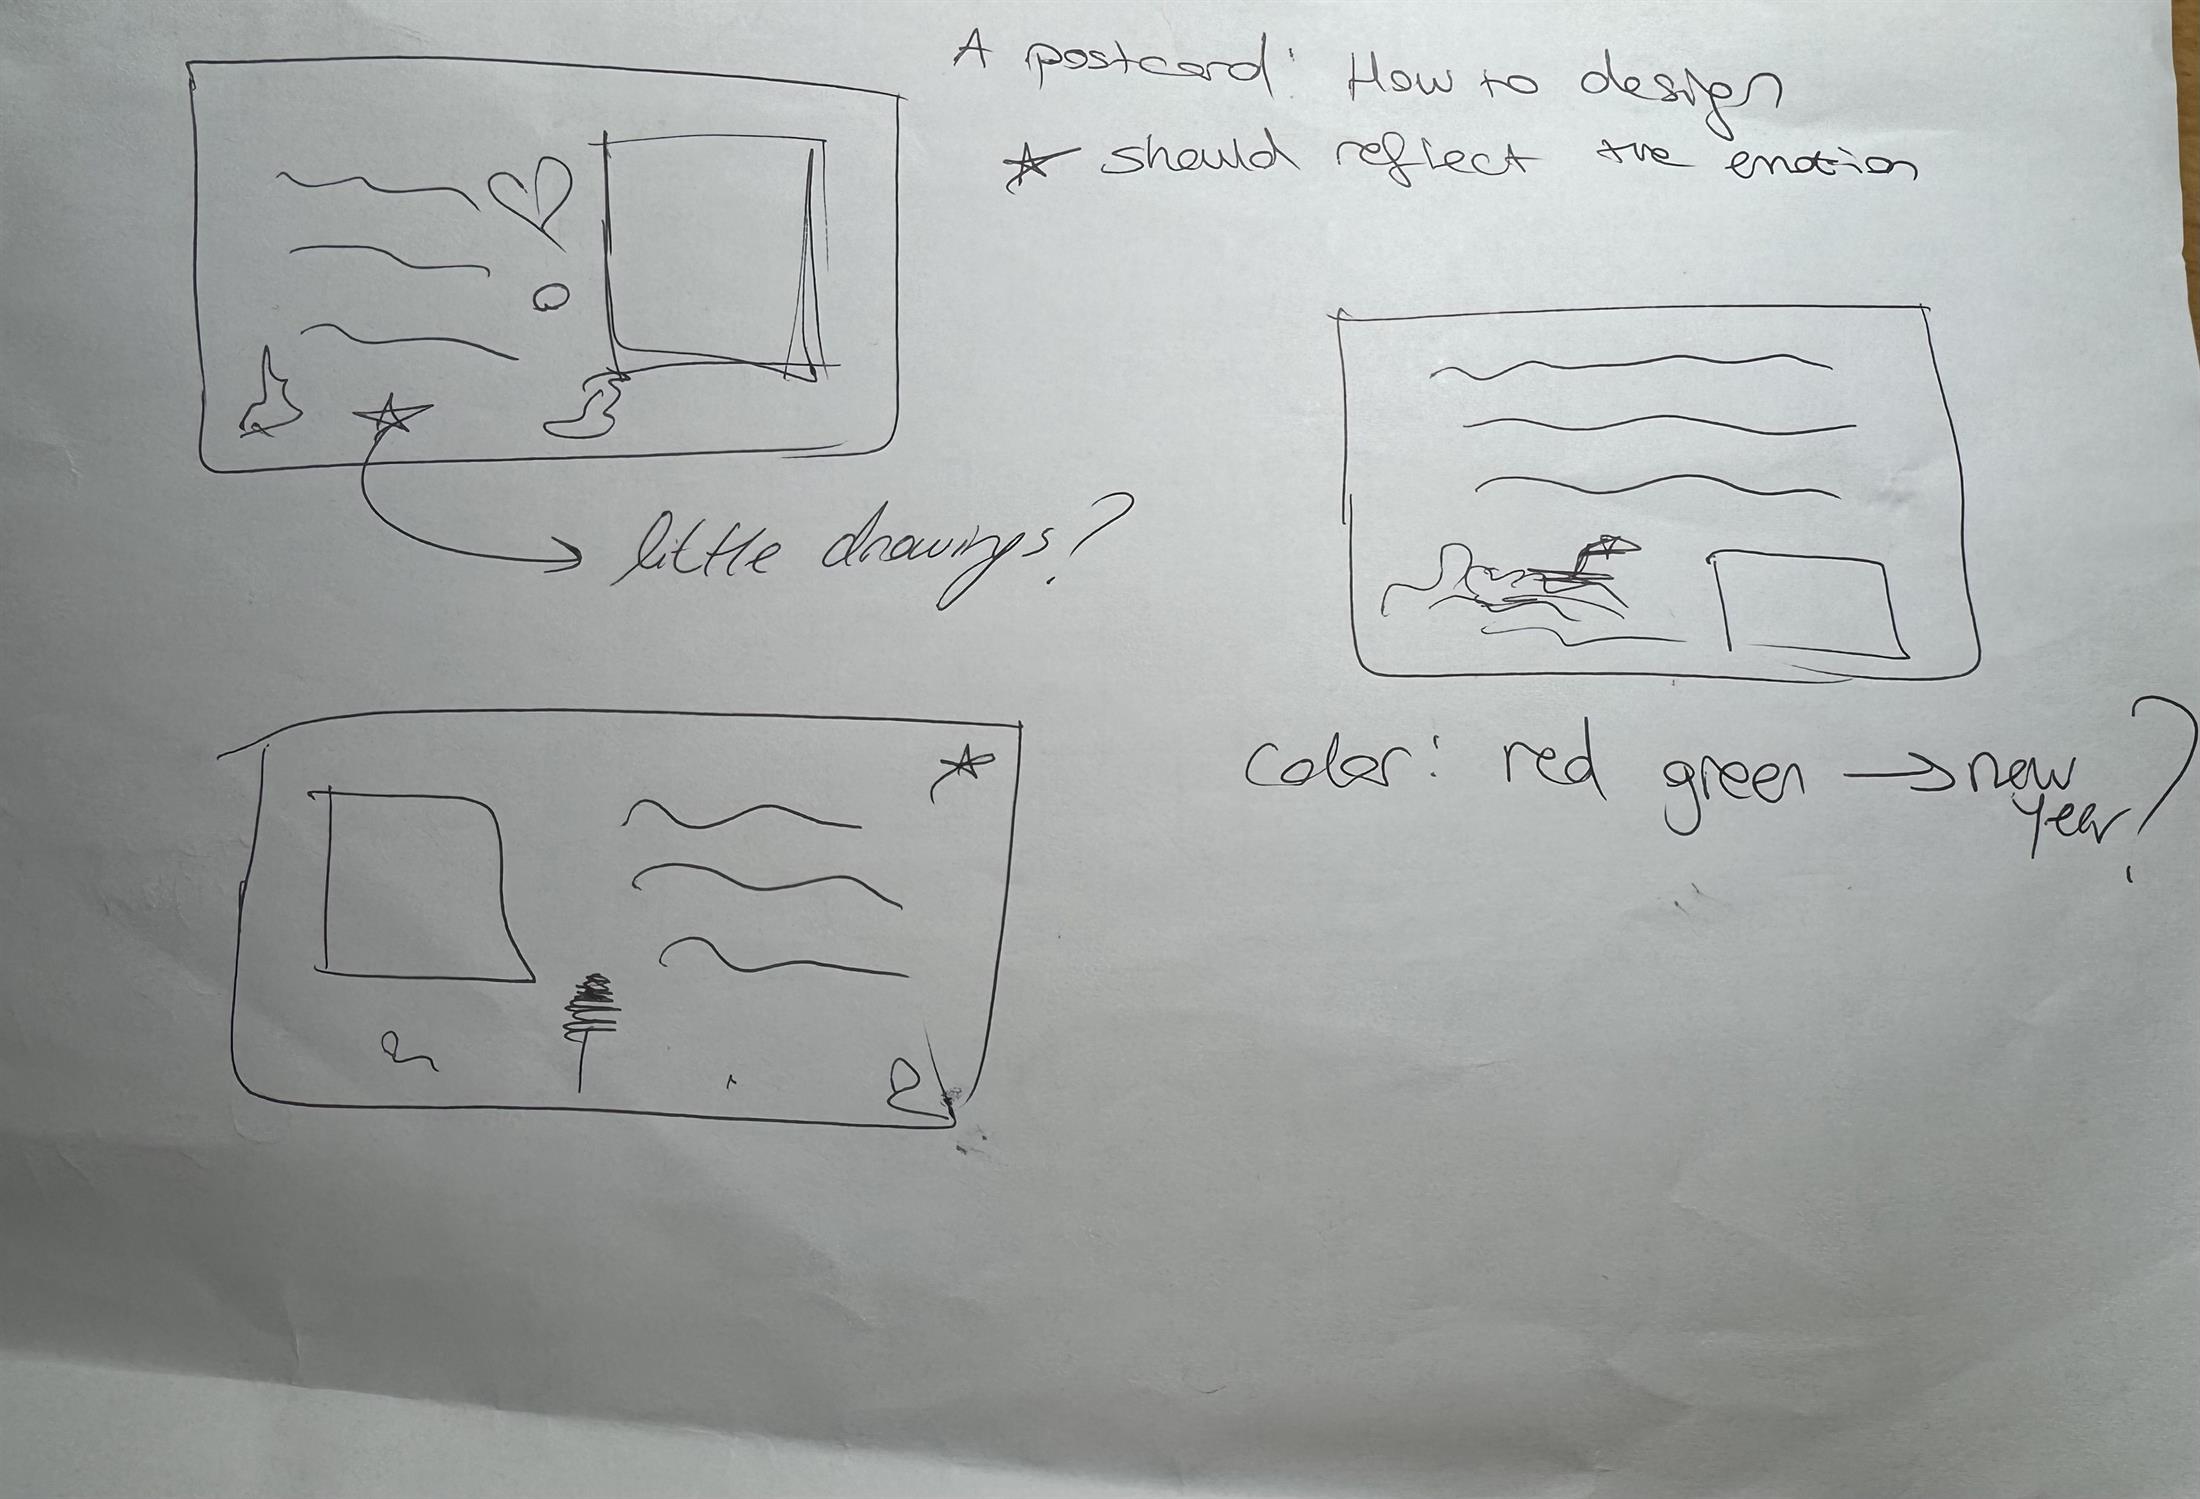 A postcard: How to design
☆ should reflect the emotion
little drawings?
color: red green → new
year?